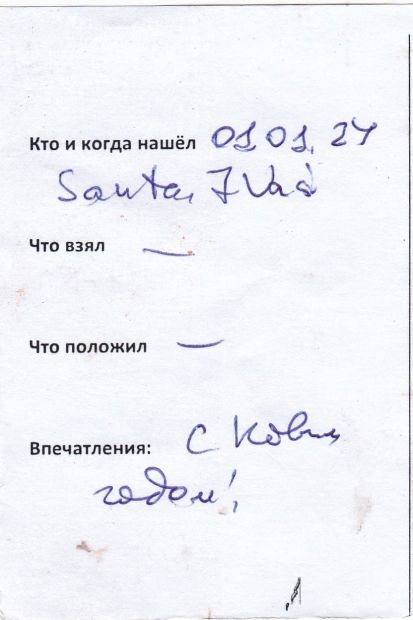 Кто и когда нашёл 01 01. 24
Santa,
Что взял —
Что положил —
Впечатления: С Новым
годом!